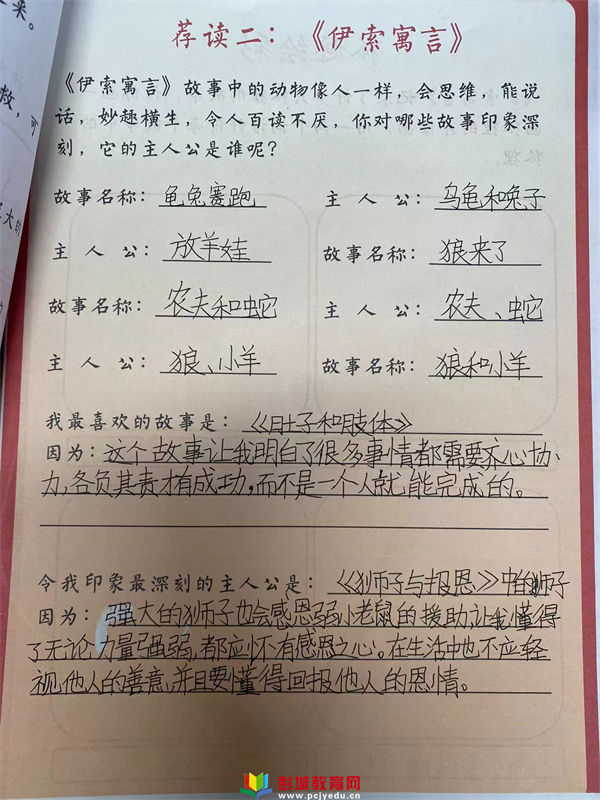 荐读二：《伊索寓言》
《伊索寓言》故事中的动物像人一样，会思维，能说
话，妙趣横生，令人百读不厌，你对哪些故事印象深
刻，它的主人公是谁呢？
故事名称：龟兔赛跑 主人公：乌龟和兔子
主人公：放羊娃 故事名称：狼来了
故事名称：农夫和蛇 主人公：农夫、蛇
主人公：狼、小羊 故事名称：狼和小羊
我最喜欢的故事是：《肚子和肢体》
因为：这个故事让我明白了很多事情都需要齐心协
力，各负其责才有成功，而不是一个人就能完成的。
令我印象最深刻的主人公是：《狮子与报恩》中的狮子
因为：强大的狮子也会感恩弱小老鼠的援助，让我懂得
了无论力量强弱，都应怀有感恩之心。在生活中也不应轻
视他人的善意，并且要懂得回报他人的恩情。
彭城教育网
www.pcjyedu.cn